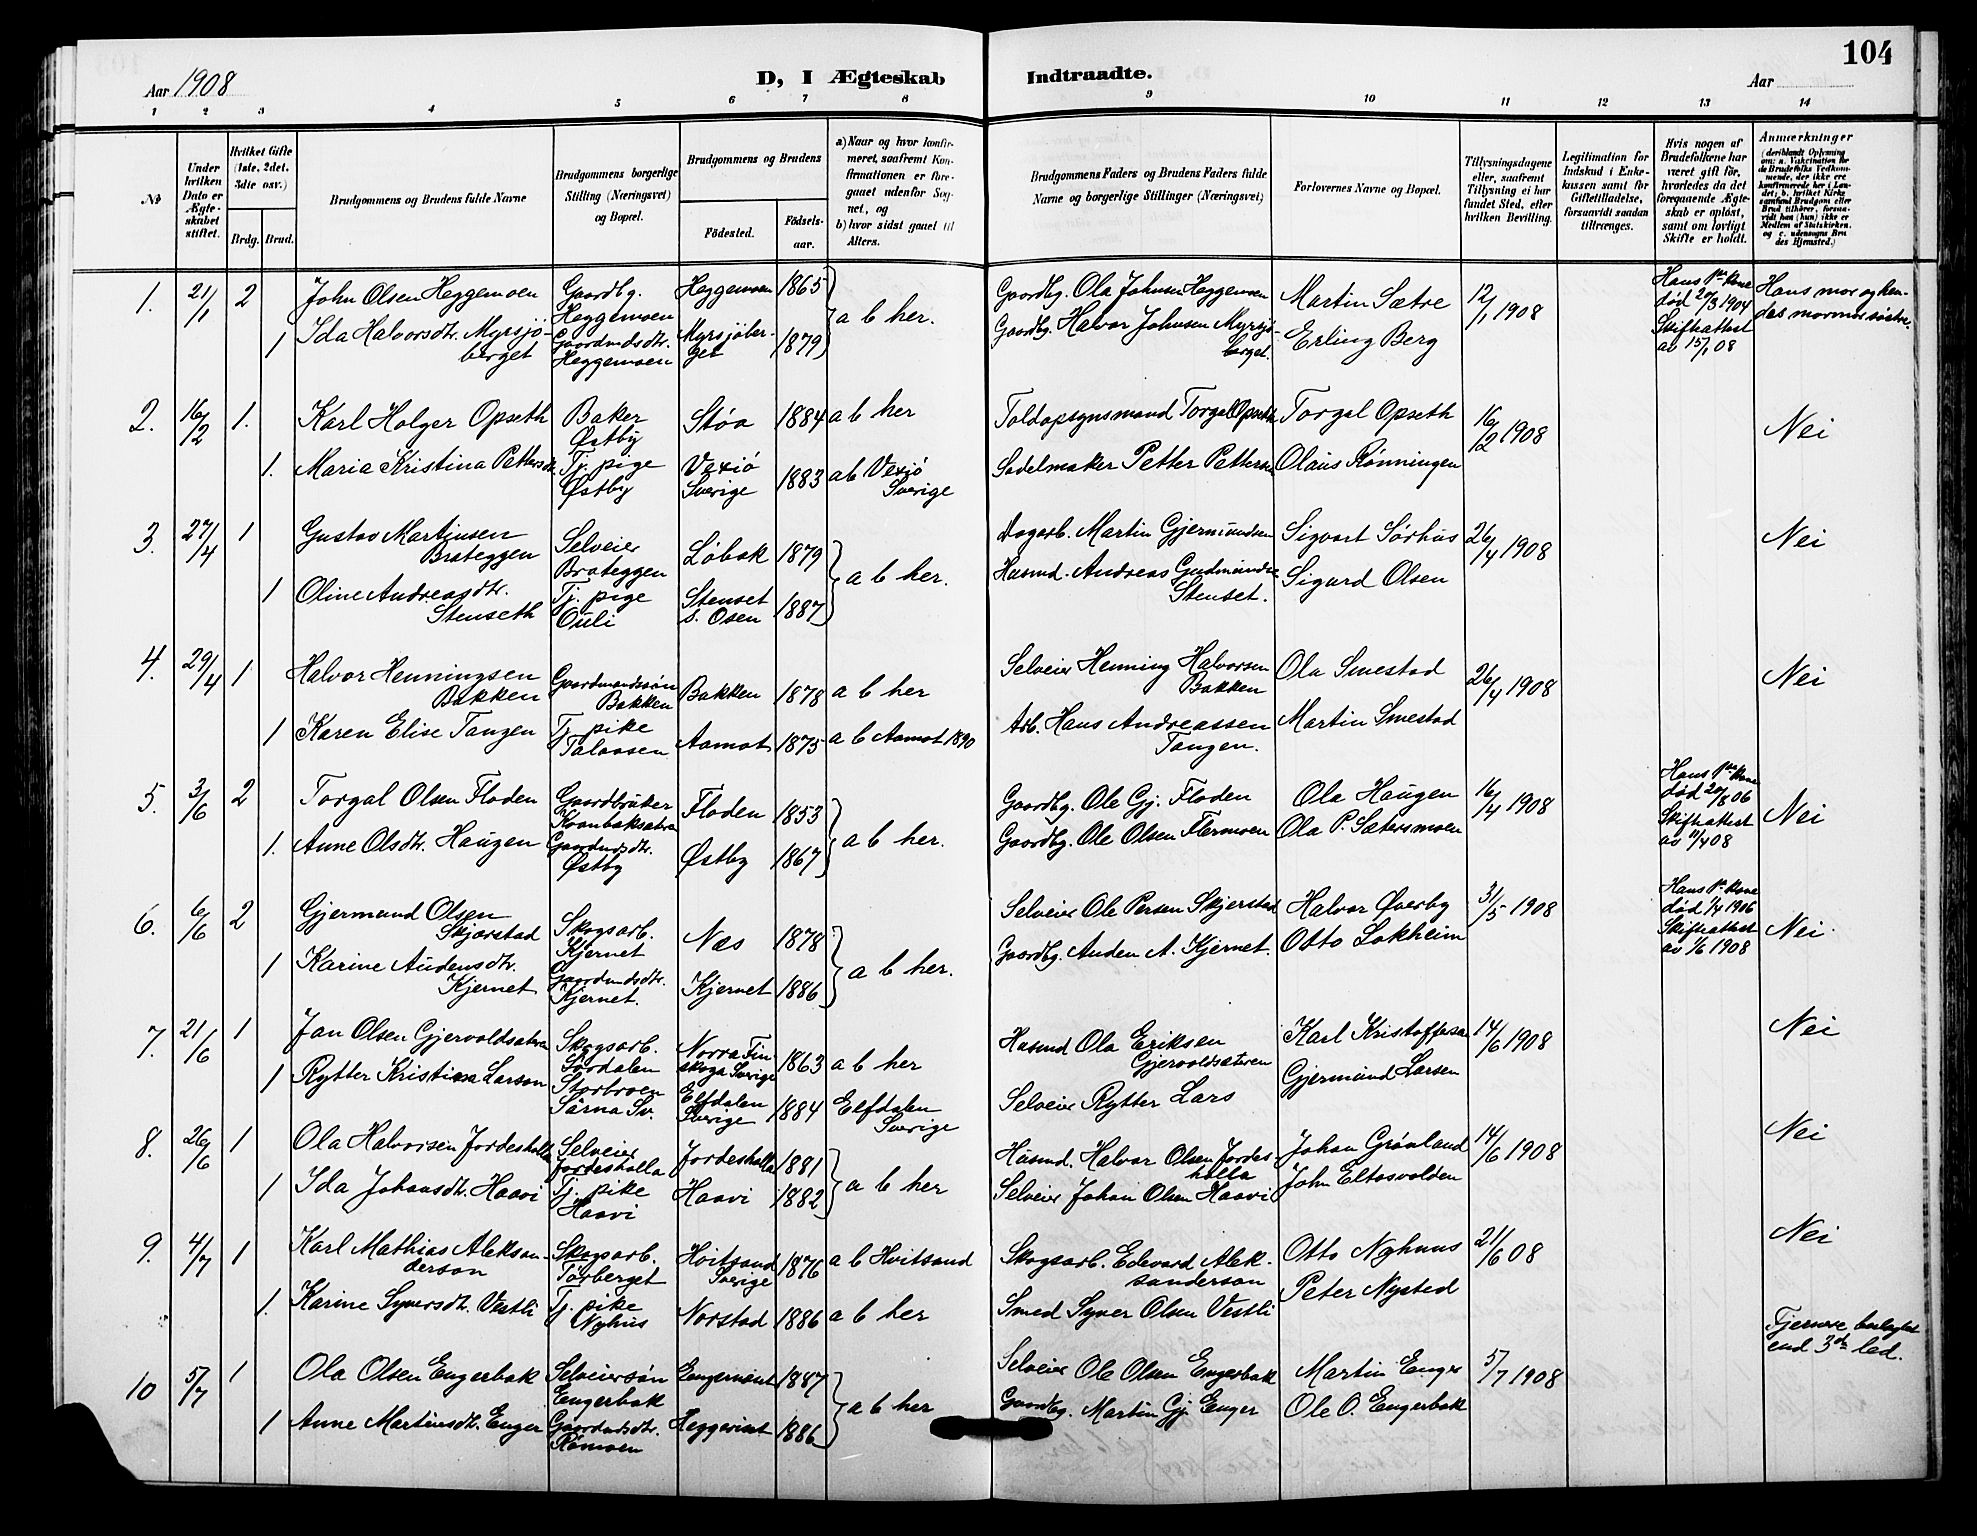 104
Aar 1908
D, I Ægteskab Indtraadte.
Aar
1 2 3 4 5 6 7 8 9 10 11 12 13 14
№
Under hvilken Dato er Ægteskabet stiftet.
Hvilket Gifte (1ste, 2det, 3die osv.)
Brdg. Brud.
Brudgommens og Brudens fulde Navne
Brudgommens borgerlige Stilling (Næringsvei) og Bopæl.
Brudgommens og Brudens
Födested.
Födselsaar.
a) Naar og hvor konfirmeret, saafremt Konfirmationen er foregaaet udenfor Sognet, og
b) hvor sidst gaaet til Alters.
Brudgommens Faders og Brudens Faders fulde Navne og borgerlige Stillinger (Næringsvei)
Forlovernes Navne og Bopæl.
Tillysningsdagene eller, saafremt Tillysning ei har fundet Sted, efter hvilken Bevilling.
Legitimation for Indskud i Enkekassen samt for Giftetilladelse, forsaavidt saadan tiltrænges.
Hvis nogen af Brudefolkene har været gift för, hvorledes da det foregaaende Ægteskab er oplöst, samt om lovligt Skifte er holdt.
Anmærkninger
(deriblandt Oplysning om: a. Vakcination for de Brudefolks Vedkommende, der ikke ere konfirmerede her i Landet; b. hvilket Kirkesamfund Brudgom eller Brud tilhörer, forsaavidt han (hun) ikke er Medlem af Statskirken, og c. udensogns Brudes Hjemsted.)
1. 21/1 2 John Olsen Heggemoen Gaardbg. Heggemoen Heggemoen 1865 a b her. Gaardbg. Ola Johnsen Heggemoen Martin Sætre 12/1 1908 Hans 1ste Kone død 20/3 1904 Skifteattest av 15/1 08 Hans mor og hendes mormor søstre.
1 Ida Halvorsdtr. Myrsjöberget Gaardmdsdtr. Heggemoen Myrsjöberget 1879 Gaardbg. Halvor Johnsen Myrsjöberget. Erling Berg
2. 16/2 1. Karl Holger Opseth Baker Østby Støa 1884 a b her Toldopsynsmand Torgal Opseth Torgal Opseth 16/2 1908 Nei
1. Maria Kristina Pettersdtr. Tj. pige Østby Vexiö Sverige 1883 a b Vexiö Sverige Sadelmaker Petter Petterson Olaus Rønningen
3. 27/4 1 Gustav Martinsen Brateggen Selveier Brateggen Löbak 1879 a b her. Dagarb. Martin Gjermundsen Sigvart Sørhus 26/4 1908 Nei
1 Oline Andreasdtr. Stenseth Tj. pige Ouli Stenset s. Osen 1887 Husmd. Andreas Gudmundsen Stenset. Sigurd Olsen
4. 29/4 1 Halvor Henningsen Bakken Gaardmandssøn Bakken Bakken 1878 a b her Selveier Henning Halvorsen Bakken Ola Smestad 26/4 1908 Nei
1 Karen Elise Tangen Tj. pike Galaasen Aamot 1875 a b Aamot 1890 Arb. Hans Andreassen Tangen. Martin Smestad
5. 3/6 2 Torgal Olsen Floden Gaardbruker Floden 1853 a b her. Gaardbg. Ole Gj. Floden Ola Haugen 16/4 1908 Hans 1ste Kone død 20/8 06 Skifteattest av 11/4 08 Nei
1. Anne Olsdtr. Haugen Gaardmdsdtr. Østby Østby 1867 Gaardbg. Ole Olsen Flermoen Ola P. Sætersmoen
6. 6/6 2 Gjermund Olsen Skjærstad Skogsarb. Kjernet Næs 1878 a b her. Selveier Ole Persen Skjerstad Halvor Øverby 31/5 1908 Hans 1ste Kone død 1/4 1906 Skifteattest av 1/6 1908 Nei.
1 Karine Audensdtr. Kjernet Gaardmdsdtr. Kjernet. Kjernet 1886 Gaardbg. Auden A. Kjernet. Otto Lokheim
7. 21/6 1 Jan Olsen Gjervoldsæteren Skogsarb. Sördalen Norra Finskoga Sverige 1863 a b her Husmd Ola Eriksen Gjervoldsæteren Karl Kristoffersen 14/6 1908 Nei
1 Rytter Kristina Larson Storbroen Särna Sv. Elfdalen Sverige 1884 Elfdalen Sverige Selveier Rytter Lars Gjermund Larsen
8. 26/6 1 Ola Halvorsen Jordesholla Selveier Jordesholla Jordesholla 1881 a b her Husmd. Halvor Olsen Jordesholla Johan Grønland 14/6 1908 Nei
1 Ida Johansdtr. Haavi Tj. pike Haavi Haavi 1882 Selveier Johan Olsen Haavi John Eltosvolden
9. 4/7 1 Karl Mathias Aleksanderson Skogsarb. Törberget Hvitsand Sverige 1876 a b Hvitsand Skogsarb. Edevard Aleksanderson Otto Nyhuus 21/6 08 Nei
1. Karine Syversdtr. Vestli Tj. pike Nyhus Norstad 1886 a b her Smed Syver Olsen Vestli Peter Nysted
10 5/7 1 Ola Olsen Engerbak Selveiersøn Engerbak Engernæset 1887 a b her Selveier Ole Olsen Engerbak Martin Enger 5/7 1908 Fjernere beslegtet end 3de led.
1 Anne Martinsdtr. Enger Gaardmdsdtr. Römoen Heggeriset 1886 Gaardbg. Martin Gj. Enger Ole O. Engerbak